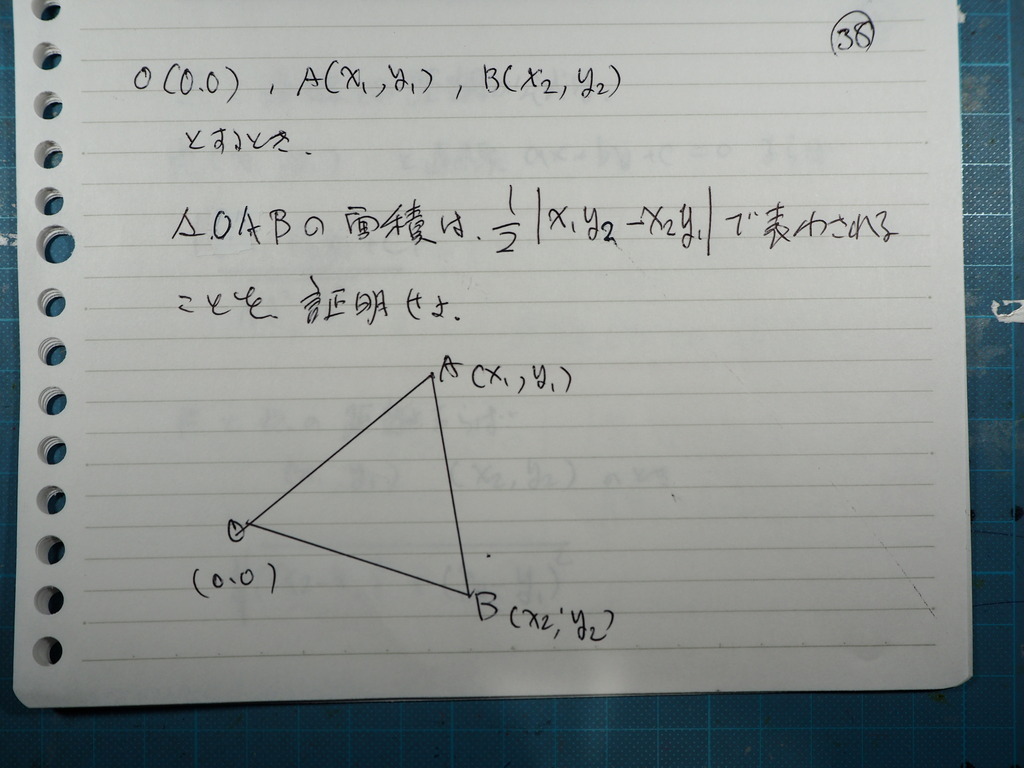 38
O(0.0), A(x₁, y₁), B(x₂, y₂)
とするとき.
△OABの面積は. 1/2 |x₁y₂-x₂y₁| で表わされる
ことを 証明せよ.
A (x₁, y₁)
O
(0.0)
B (x₂, y₂)